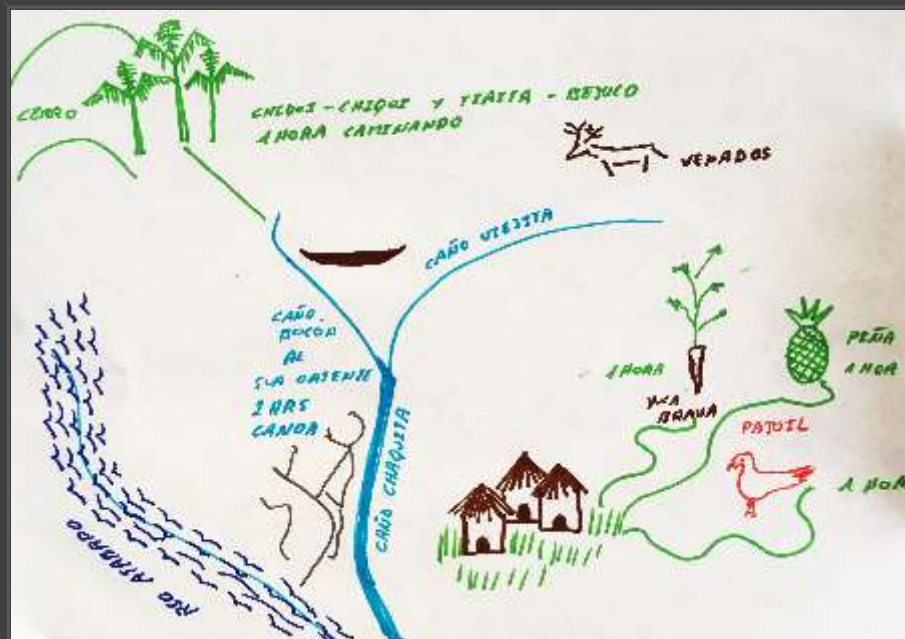 CERRO
CHIQUI-CHIQUI Y YTAITA - BEJUCO
1 HORA CAMINANDO
VENADOS
CAÑO VIEJITA
CAÑO.
AL
2 HRS
CANOA
CAÑO CHAQUITA
RIO ATABAPO
1 HORA
YUCA
BRAVA
PIÑA
1 HOR
PAJUIL
1 HOR